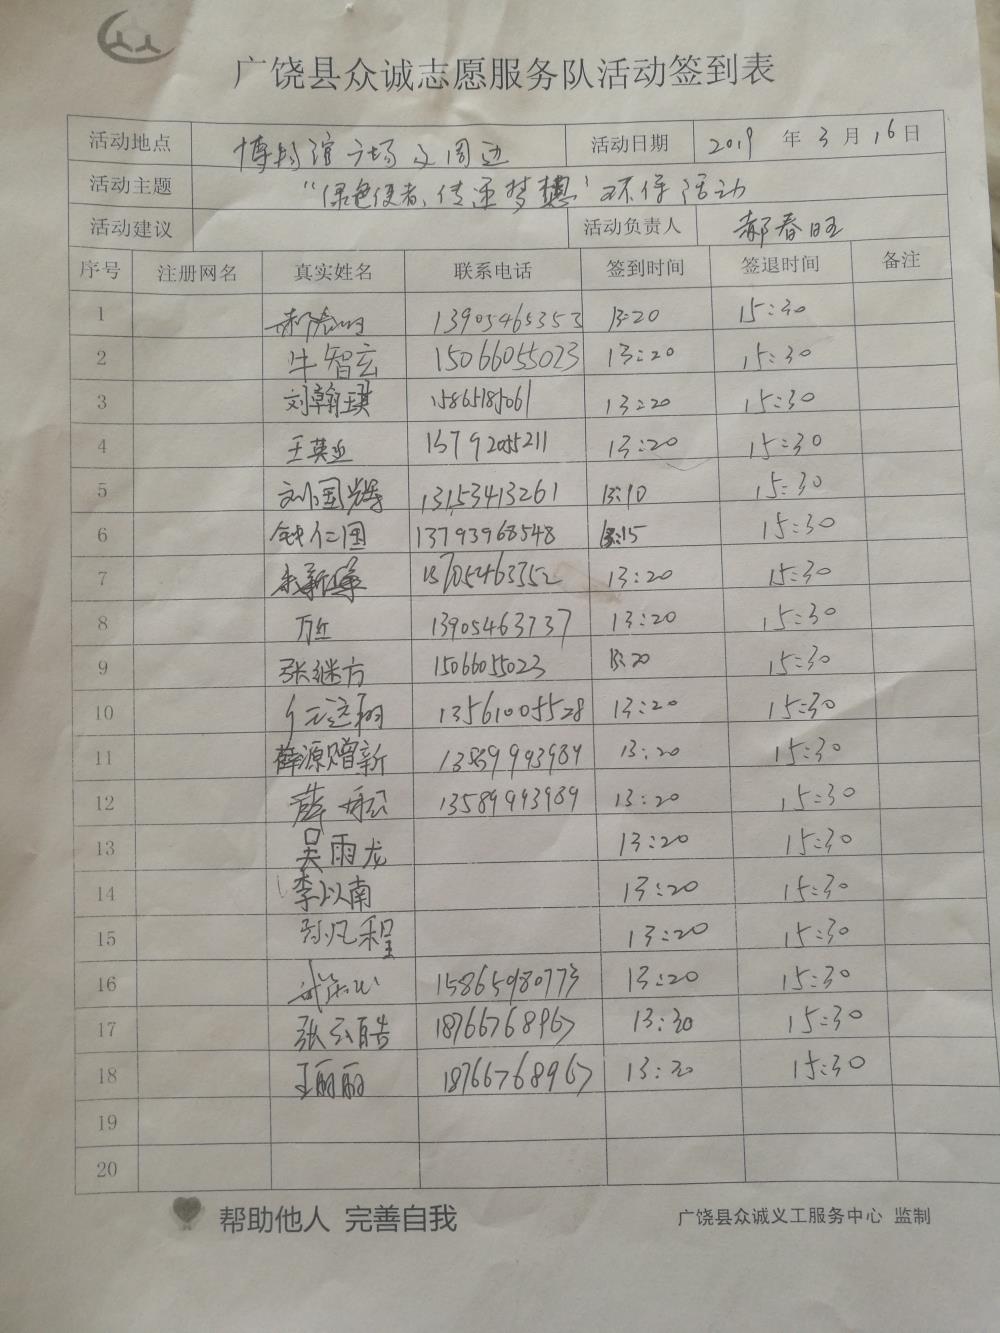 广饶县众诚志愿服务队活动签到表
活动地点 博物馆广场及周边 活动日期 2019 年 3 月 16 日
活动主题 “绿色使者、传递梦想”环保活动
活动建议 活动负责人 郝春旺
序号 注册网名 真实姓名 联系电话 签到时间 签退时间 备注
1 13905465353 13:20 15:30
2 牛智玄 15066055023 13:20 15:30
3 刘翰琪 15865185061 13:20 15:30
4 王英业 13792055211 13:20 15:30
5 刘国辉 13153413261 13:10 15:30
6 钟仁国 13793968548 13:15 15:30
7 13:20 15:30
8 13905463737 13:20 15:30
9 张继方 15066055023 13:20 15:30
10 13561005528 13:20 15:30
11 薛源赠新 13589993989 13:20 15:30
12 薛 13589993989 13:20 15:30
13 吴雨龙 13:20 15:30
14 李以南 13:20 15:30
15 13:20 15:30
16 15865980773 13:20 15:30
17 张云皓 18766768967 13:30 15:30
18 王丽丽 18766768967 13:30 15:30
19
20
帮助他人 完善自我 广饶县众诚义工服务中心 监制